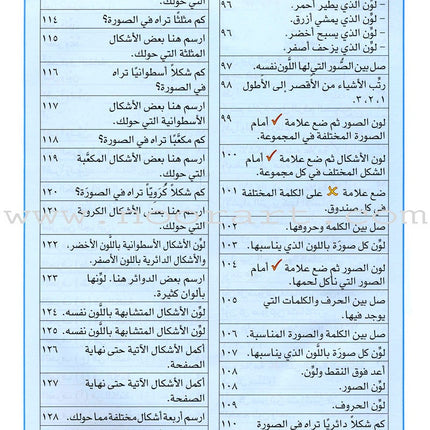 - لوِّن الذي يطير أحمر. ٩٦
- لوِّن الذي يمشي أزرق.
- لوِّن الذي يسبح أخضر.
- لوِّن الذي يزحف أصفر.
صل بين الصُّور التي لها اللَّون نفسه. ٩٧
رتِّب الأشياء من الأقصر إلى الأطول ٩٨
١، ٢، ٣.
لون الصور ثم ضع علامة ✓ أمام ٩٩
الصورة المختلفة في المجموعة.
لون الأشكال ثم ضع علامة ✓ أمام ١٠٠
الشكل المختلف في كل مجموعة.
ضع علامة ✗ على الكلمة المختلفة ١٠١
في كل صندوق.
صل بين الكلمة وحروفها. ١٠٢
لوِّن كل صورة باللون الذي يناسبها. ١٠٣
لون الصور ثم ضع علامة ✓ أمام ١٠٤
الصور التي نأكل لحمها.
صل بين الحرف والكلمات التي ١٠٥
يوجد فيها.
صل بين الكلمة والصورة المناسبة. ١٠٦
لوِّن كل صورة باللَّون الذي يناسبها. ١٠٧
أعد فوق النقط ولوِّن. ١٠٨
لوِّن الصور. ١٠٨
لوِّن الحروف. ١٠٩
كم شكلاً دائريًا تراه في الصورة ١١٠
التي حولك.
كم مثلثًا تراه في الصورة؟ ١١٤
ارسم هنا بعض الأشكال ١١٥
المثلثة التي حولك.
كم شكلاً أسطوانيًا تراه ١١٦
في الصورة؟
ارسم هنا بعض الأشكال ١١٧
الأسطوانية التي حولك.
كم مكعَّبًا تراه في الصورة؟ ١١٨
ارسم هنا بعض الأشكال المكعَّبة ١١٩
التي حولك.
كم شكلاً كُرَويًّا تراه في الصورة؟ ١٢٠
ارسم هنا بعض الأشكال الكروية ١٢١
التي حولك.
لوِّن الأشكال الأسطوانية باللَّون الأخضر، ١٢٢
والأشكال الدائرية باللَّون الأصفر.
ارسم بعض الدوائر هنا. لوِّنها ١٢٣
بألوان كثيرة.
لوِّن الأشكال المتشابهة باللَّون نفسه. ١٢٤
لوِّن الأشكال المتشابهة باللَّون نفسه. ١٢٥
أكمل الأشكال الآتية حتى نهاية ١٢٦
الصفحة.
أكمل الأشكال الآتية حتى نهاية ١٢٧
الصفحة.
ارسم أربعة أشكال مختلفة مما حولك. ١٢٨